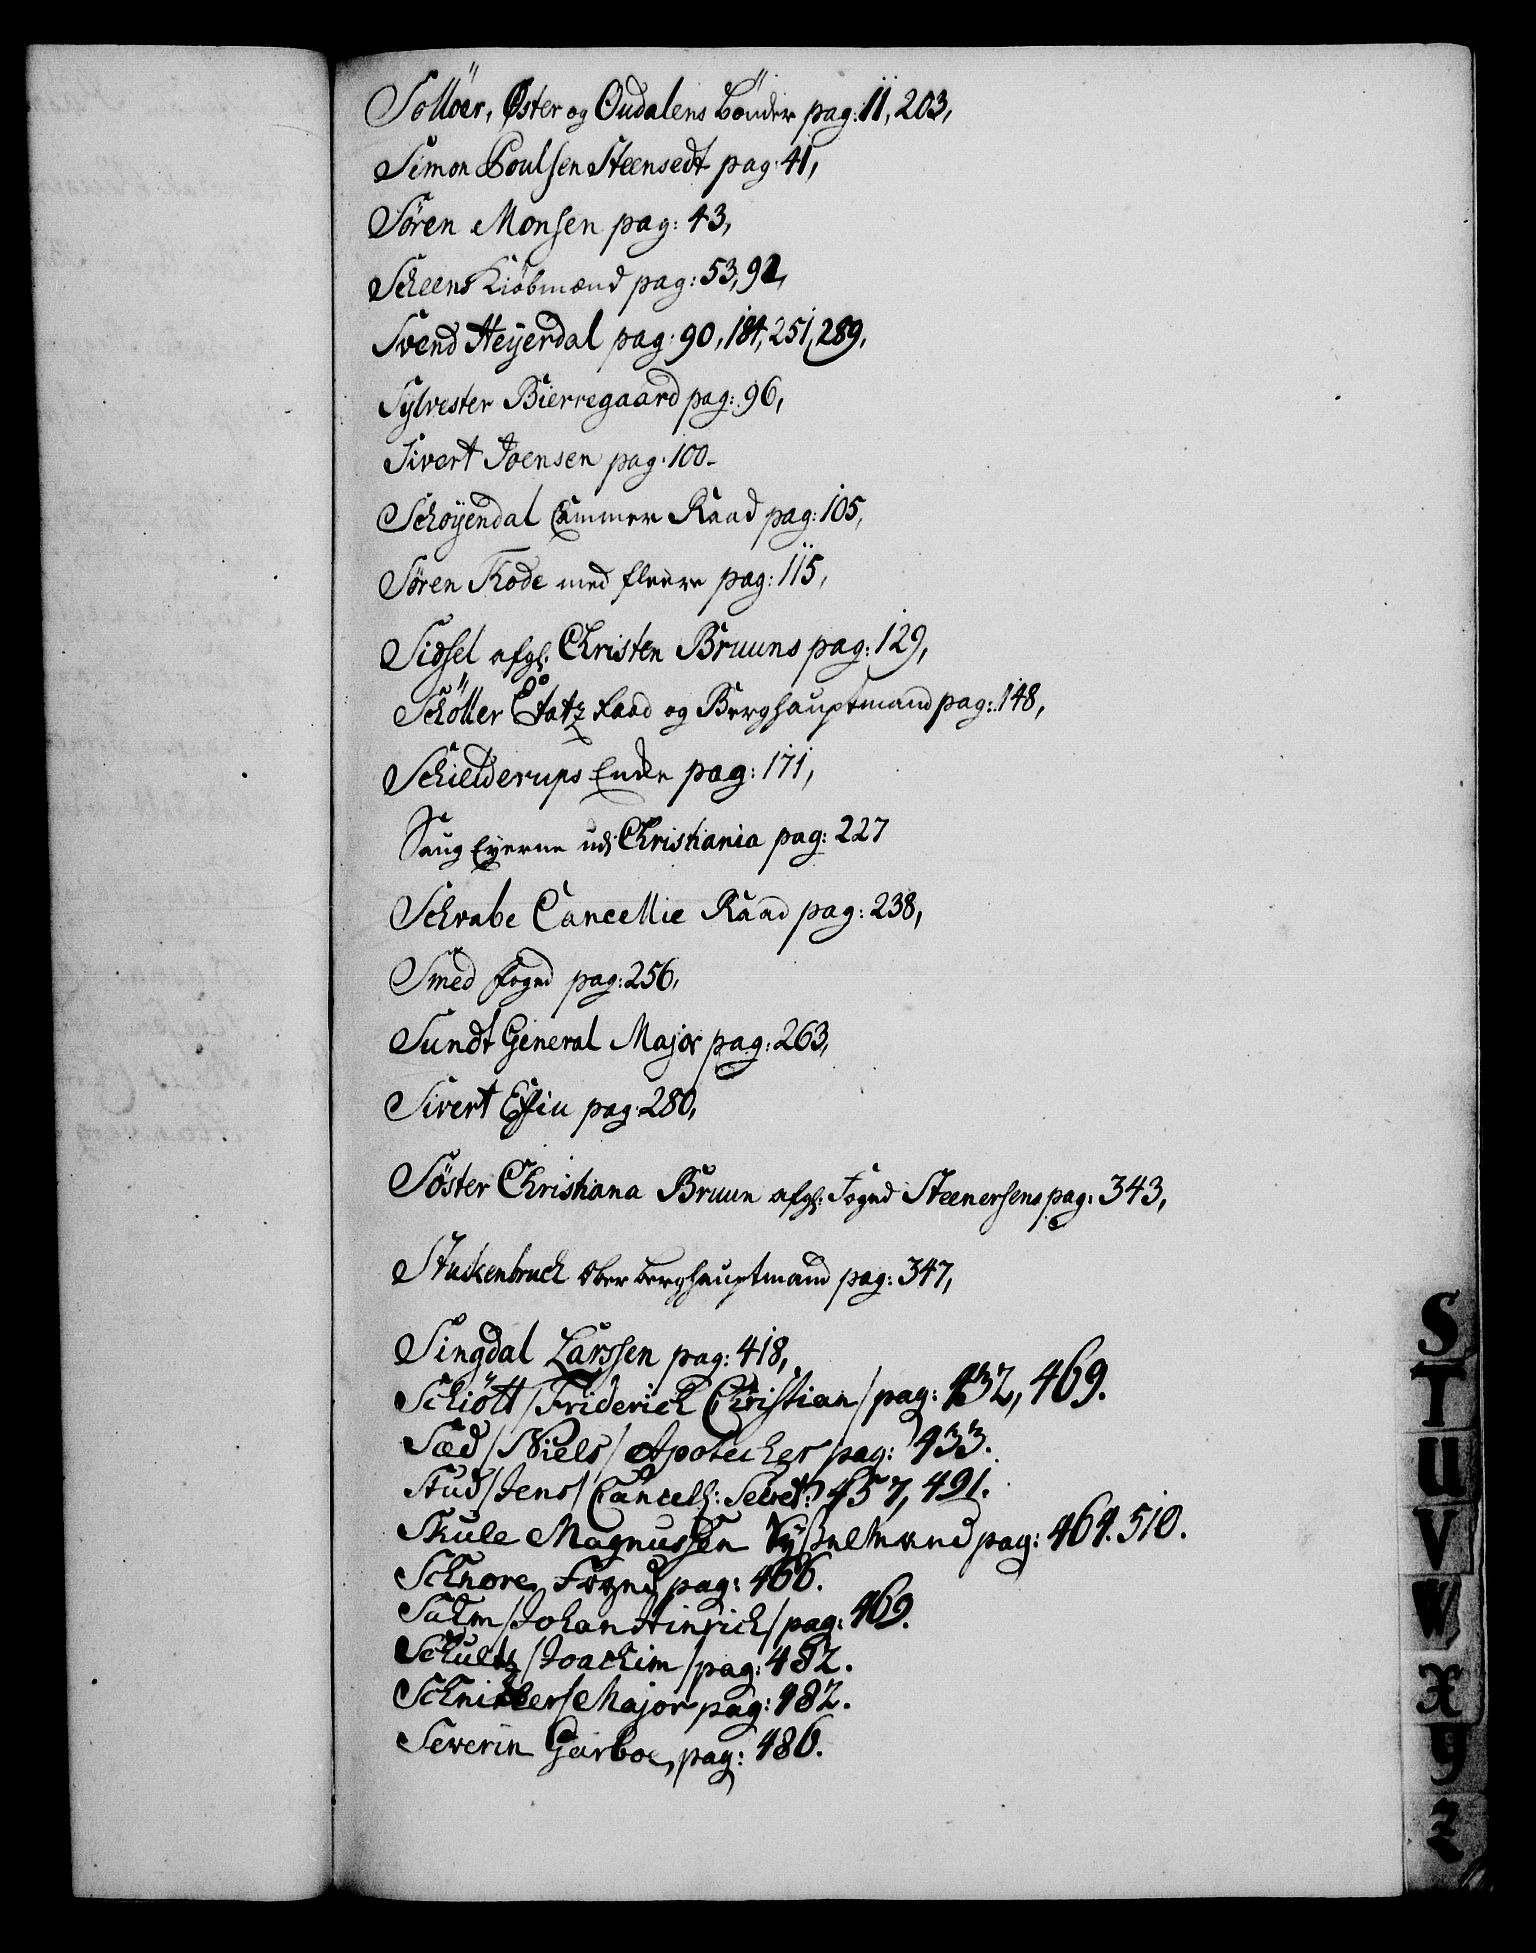 Solløer, Øster og Oudalens Bønder pag: 11, 203,
Simon Poulsen Steensedt pag: 41,
Søren Monsen pag: 43,
Scheens Kiøbmænd pag: 53, 92,
Svend Heÿerdal pag: 90, 184, 251, 289,
Sylvester Bierregaard pag: 96,
Sivert Joensen pag: 100-
Schøÿendal Cammer Raad pag: 105,
Søren Rode med fleere pag: 115,
Sidsel afgl: Christen Bruuns pag: 129,
Schøller Etatz Raad og Berghauptmand pag: 148,
Schielderups Encke pag: 171,
Saug Eyerne udi Christiania pag: 227
Schrabe Cancellie Raad pag: 238,
Smed Foged pag: 256,
Sundt General Major pag: 263,
Sivert pag: 280,
Søster Christiana Bruun afgl: Foged Steenersens pag: 343,
Stukenbruch Ober Berghauptmand pag: 347,
Singdal Larssen pag: 418,
Schiøtt /Friderich Christian/ pag: 432, 469.
Sæd /Niels/ Apotecher pag: 433.
Stud /Jens/ Cancell: Secret: 457, 491.
Skule Magnussen Sysselmand pag: 464. 510.
Schnore, Foged pag: 466.
Salm /Johan Hinrich/ pag: 469.
Schultz /Joachim/ pag: 482.
Schnitler/ Major pag: 482.
Severin Garboe, pag: 486.
S
T
U
V
W
X
Y
Z